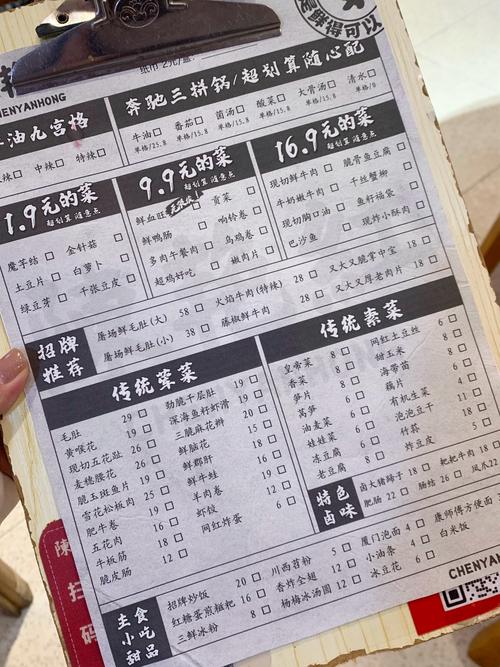 麻得可以
纸巾2元/盒
CHENYANHONG
油九宫格
奔驰三拼锅/超划算随心配
辣□ 中辣□ 特辣□
牛油□ 番茄□ 菌汤□ 酸菜□ 大骨汤□ 清水□
单格/15.8 单格/15.8 单格/15.8 单格/15.8 单格/15.8 单格/0
1.9元的菜
超划算 随意点
魔芋结□ 金针菇□
土豆片□ 白萝卜□
绿豆芽□ 千张豆皮□
9.9元的菜
超划算 随意点
鲜血旺 贡菜□
鲜鸭肠 响铃卷□
多肉午餐肉□ 乌鸡卷□
超鸡好吃□ 嫩肉片□
16.9元的菜
超划算 随意点
现切鲜牛肉□ 脆骨鱼豆腐□
牛奶嫩牛肉□ 千丝蟹柳□
现切胸口油□ 鱼籽福袋□
巴沙鱼□ 现炸小酥肉□
招牌推荐
屠场鲜毛肚(大) 58□ 火焰牛肉(特辣) 28□ 又大又脆掌中宝 18□
屠场鲜毛肚(小) 38□ 藤椒鲜牛肉 28□ 又大又厚老肉片 18□
传统荤菜
毛肚 29□ 劲脆千层肚 19□
黄喉花 19□ 深海鱼籽虾滑 19□
现切五花趾 26□ 三脆麻花辫 20□
麦穗腰花 26□ 鲜脑花 15□
脆玉斑鱼片 19□ 鲜郡肝 18□
雪花松板肉 25□ 鲜牛蛙 16□
肥牛卷 19□ 羊肉卷 19□
五花肉 16□ 虾饺 12□
牛板筋 18□ 网红炸蛋 6□
脆皮肠 12□
传统素菜
皇帝菜 8□ 网红土豆丝 6□
香菜 8□ 甜玉米 8□
笋片 8□ 海带苗 6□
莴笋 6□ 藕片 6□
油麦菜 6□ 有机生菜 4□
娃娃菜 6□ 泡泡豆干 11□
冻豆腐 6□ 竹荪 18□
老豆腐 8□ 炸豆皮 5□
特色卤味
卤大猪蹄子 18□ 粑粑牛肉 18
肥肠 22□ 肠结 26□ 凤爪 22
主食小吃甜品
招牌炒饭 20□ 川西苕粉 5□ 厦门泡面 4□ 康师傅方便面
红糖蛋煎糍粑 16□ 香炸全翅 12□ 小油条 4□ 白米饭
三鲜冰粉 8□ 杨梅冰汤圆 12□ 冰豆花 6□
CHENYAN
陳
扫
码